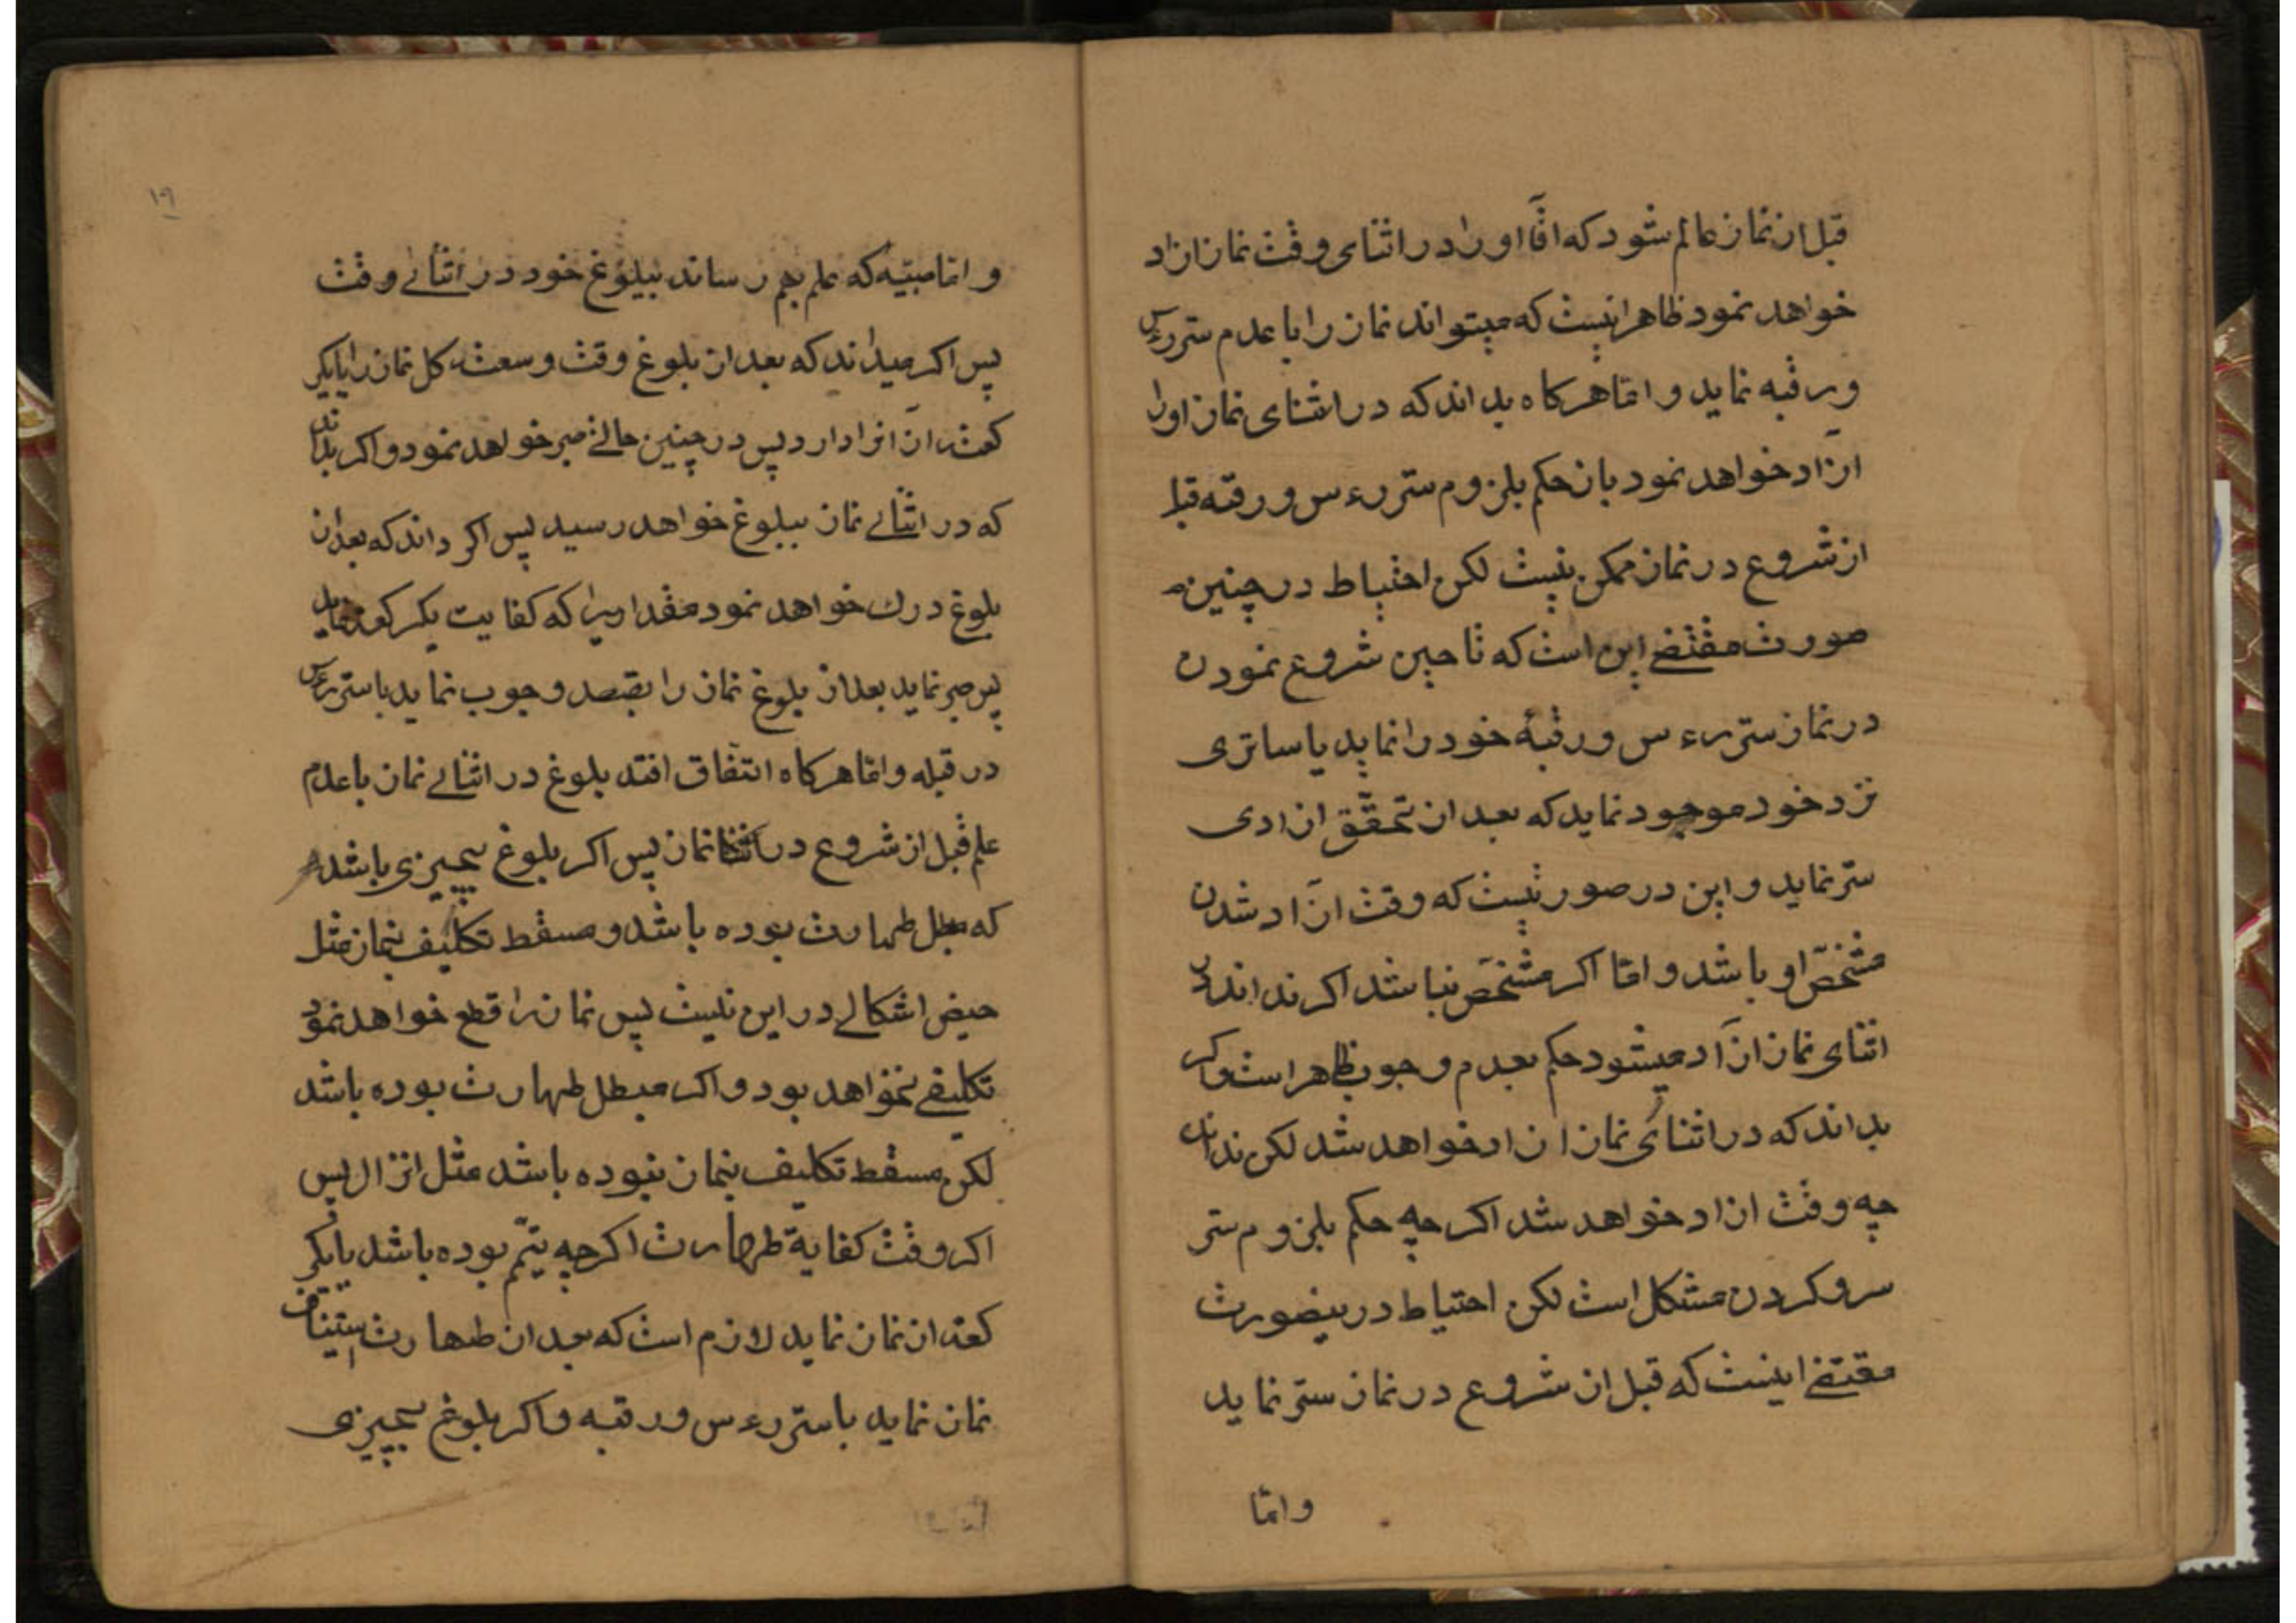 قبل از نماز عالم شود که اقا او را در اثنای وقت نماز ازاد
خواهد نمود ظاهر اینست که میتواند نماز را با عدم ستر رءس
و رقبه نماید و اما هرکاه بداند که در اثنای نماز او را
ازآد خواهد نمود بان حکم بلزوم ستر رءس و رقبه قبل
از شروع در نماز ممکن نیست لکن احتیاط در چنین
صورت مقتضی این است که تا حین شروع نمودن
در نماز ستر رءس و رقبهٔ خود را نماید یا ساتری
نزد خود موجود نماید که بعد از تحقّق ازادی
ستر نماید و این در صورتیست که وقت ازآد شدن
مشخّص او باشد و امّا اکر مشخّص نباشد اکر نداند در
اثنای نماز ازآد میشود حکم بعدم وجوب ظاهر است و اکر
بداند که در اثنای نماز ازاد خواهد شد لکن نداند
چه وقت ازاد خواهد شد اکر چه حکم بلزوم ستر
سر و کردن مشکل است لکن احتیاط در ینصورت
مقتضی اینست که قبل از شروع در نماز ستر نماید
و امّا
۱۹
و امّا صبیّه که علم بهم رساند ببلوغ خود در اثنای وقت
پس اکر میداند که بعد از بلوغ وقت وسعت کل نماز را یا یکر
کعت از آنرا دارد پس در چنین حالتی صبر خواهد نمود و اکر بداند
که در اثنای نماز ببلوغ خواهد رسید پس اکر داند که بعد از
بلوغ درك خواهد نمود مقداریرا که کفایت یکرکعت نماید
پس صبر نماید بعد از بلوغ نماز را بقصد وجوب نماید با ستر رءس
در قبله و امّا هرکاه اتّفاق افتد بلوغ در اثنای نماز با عدم
علم قبل از شروع در اثنا نماز پس اکر بلوغ بچیزی باشد
که مبطل طهارت بوده باشد و مسقط تکلیف بنماز مثل
حیض اشکالی در این نیست پس نماز را قطع خواهد نمود
تکلیفی نخواهد بود و اکر مبطل طهارت بوده باشد
لکن مسقط تکلیف بنماز نبوده باشد مثل انزال پس
اکر وقت کفایة طهارت اکرچه تیمّم بوده باشد با یکر
کعت از نماز نماید لازم است که بعد از طهارت استیناف
نماز نماید با ستر رءس و رقبه و اکر بلوغ بچیزی